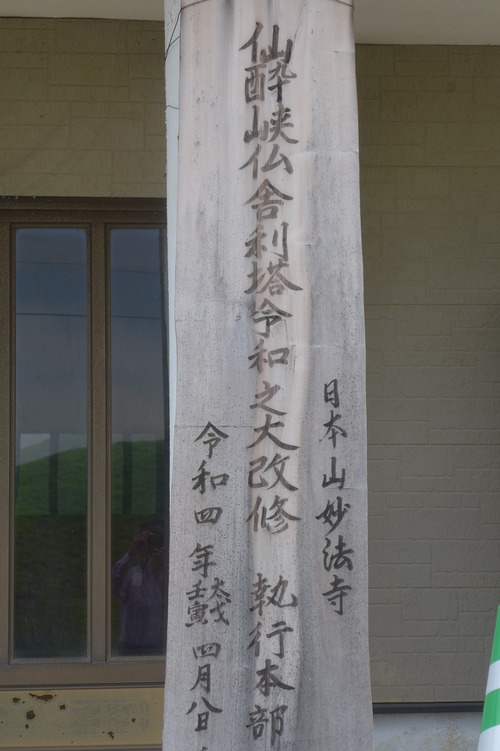 日本山妙法寺
仙酔峡仏舎利塔令和之大改修 執行本部
令和四年太戈壬寅四月八日